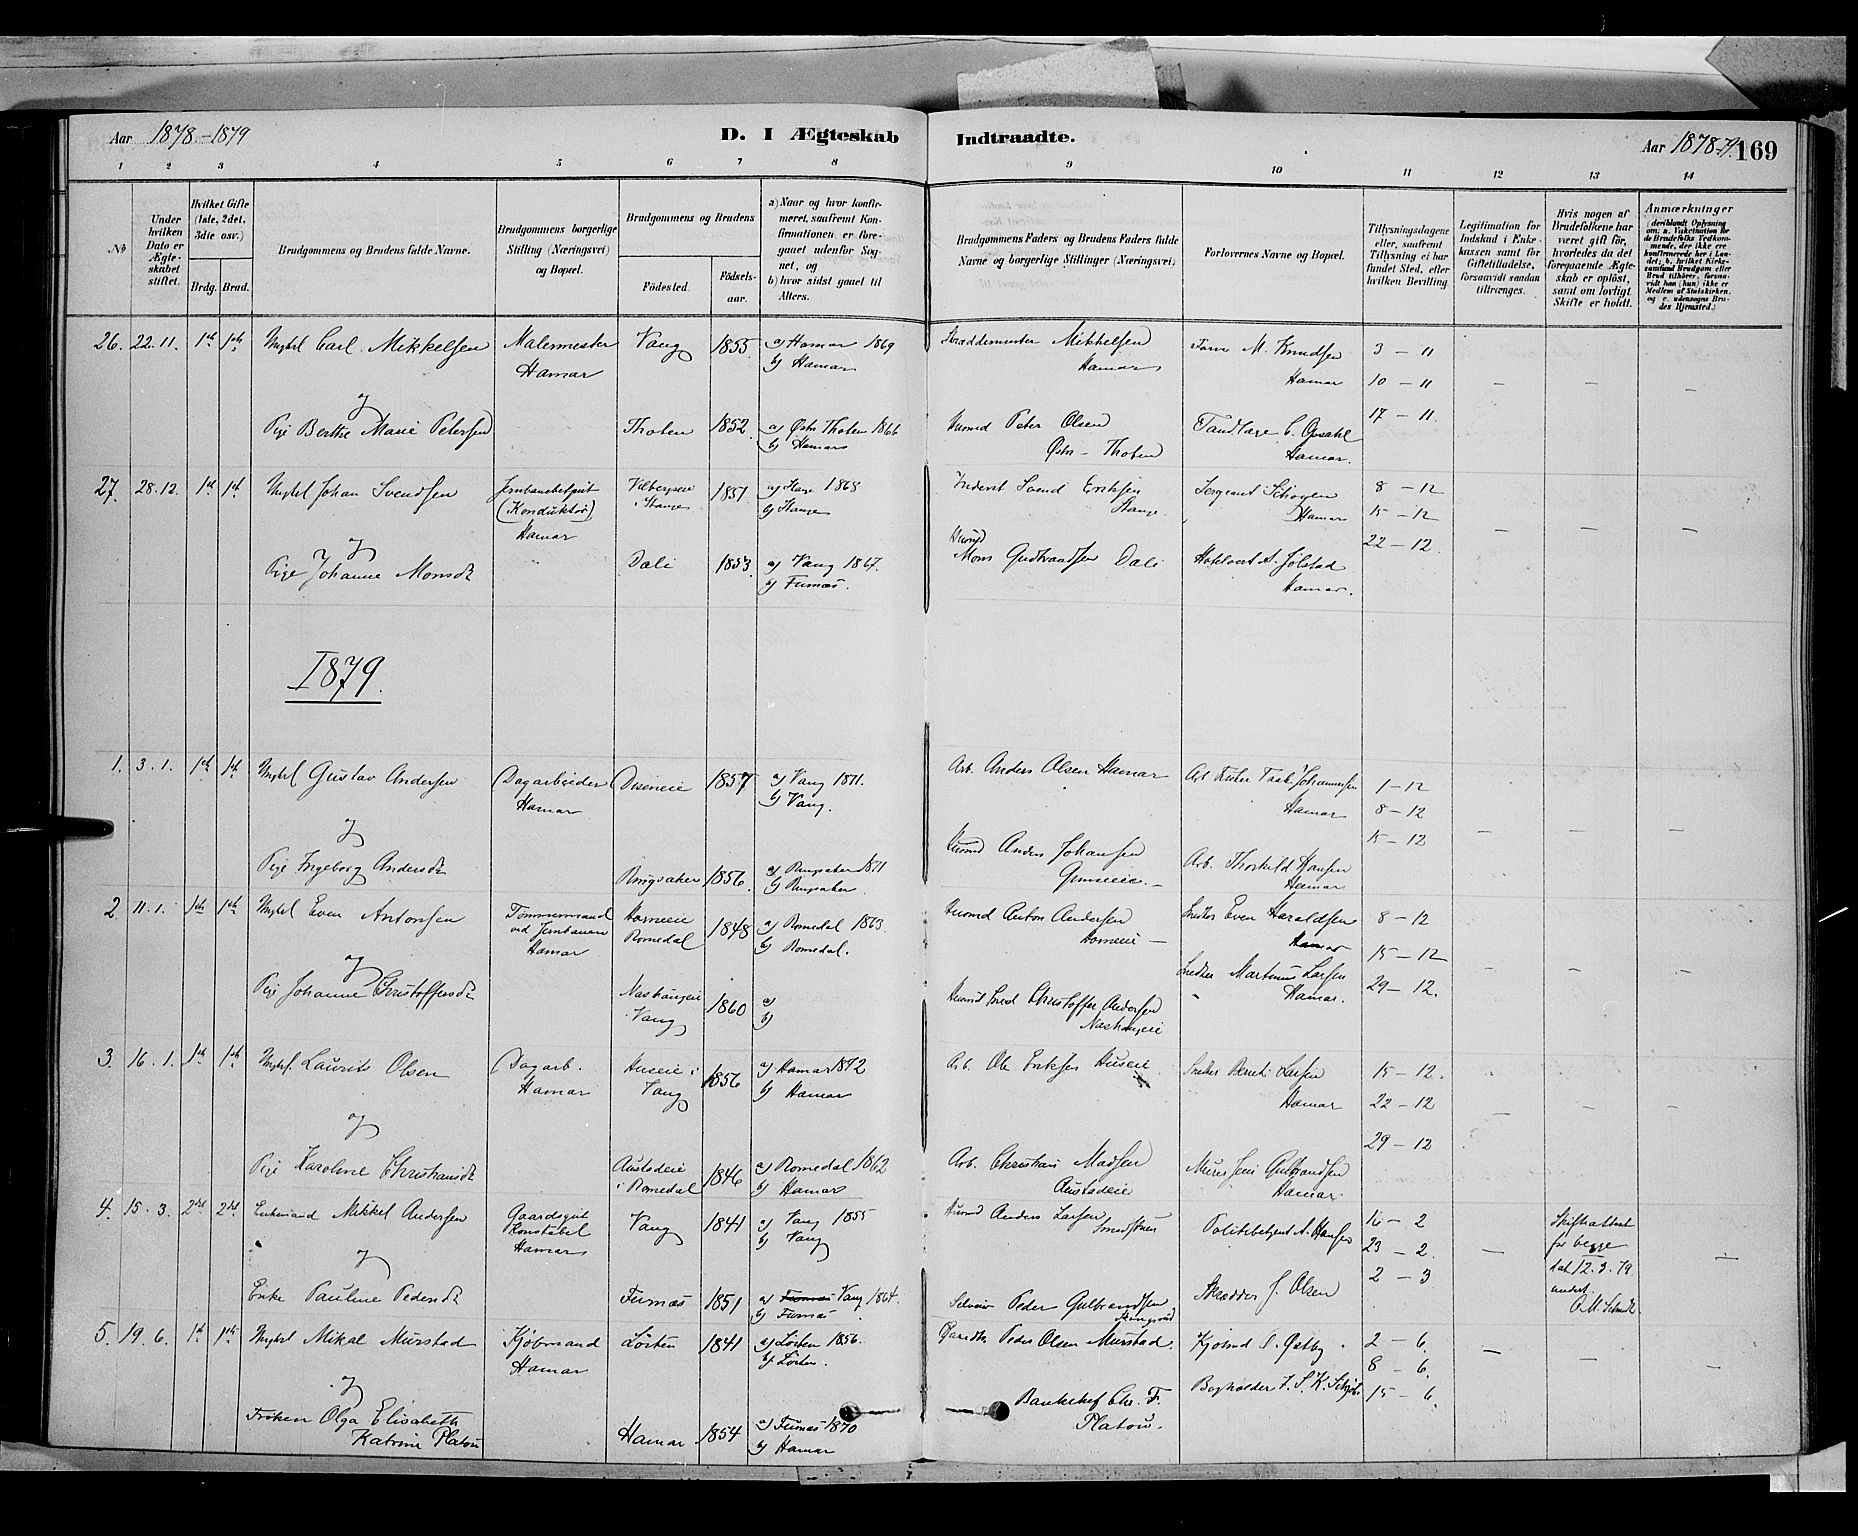 Aar 1878-1879
D. I Ægteskab Indtraadte.
Aar 1878-79. 169
1 2 3 4 5 6 7 8 9 10 11 12 13 14
No
Under hvilken Dato er Ægteskabet stiftet.
Hvilket Gifte (1ste, 2det, 3die osv.)
Brdg. Brud.
Brudgommens og Brudens fulde Navne.
Brudgommens borgerlige Stilling (Næringsvei) og Bopæl.
Brudgommens og Brudens
Födested. Födselsaar.
a) Naar og hvor konfirmeret, saafremt Konfirmationen er foregaaet udenfor Sognet, og
b) hvor sidst gaaet til Alters.
Brudgommens Faders og Brudens Faders fulde Navne og borgerlige Stillinger (Næringsvei)
Forlovernes Navne og Bopæl.
Tillysningsdagene eller, saafremt Tillysning ei har fundet Sted, efter hvilken Bevilling.
Legitimation for Indskud i Enkekassen samt for Giftetilladelse, forsaavidt saadan tiltrænges.
Hvis nogen af Brudefolkene har været gift för, hvorledes da det foregaaende Ægteskab er oplöst, samt om lovligt Skifte er holdt.
Anmærkninger
26. 22.11. 1ste 1ste Ungkl Carl Mikkelsen Malermester Vang 1855 a) Hamar 1869 Skræddermester Mikkelsen M. Knudsen 3 - 11
Hamar b) Hamar Hamar Hamar 10 - 11 - - -
og 17 - 11
Pige Berthe Marie Petersen Thoten 1852. a) Østre Thoten 1866 Huusmd Peter Olsen Tandlæge C. Opsahl
b) Hamar Østre-Thoten Hamar.
27. 28.12. 1ste 1ste Ungkl Johan Svendsen Jernbanebetjent i Stange 1851 a) Stange 1868 Inderst Svend Eriksen Sergeant 8 - 12
(Konduktør) b) Stange Stange Hamar 15 - 12 - - -
Hamar 22 - 12.
og
Pige Johanne Monsdt Dali 1853. a) Vang 1867. Huusmd Mons Gudbrandsen Dali A. Jølstad
b) Furnæs. Hamar.
1879.
1. 3.1. 1ste 1ste Ungkl Gustav Andersen Dagarbeider Diseneie 1857 a) Vang 1871. Arb. Anders Olsen Hamar Johannesen 1 - 12
Hamar b) Vang. Hamar 8 - 12 - - -
og 15 - 12
Pige Ingeborg Andersdt Ringsaker 1856. a) Ringsaker 1871 Huusmd Anders Johansen Arb. Thorkild Hansen
b) Ringsaker. Hamar
2. 11.1. 1ste 1ste Ungkl Even Antonsen Tømmermand Horneeie 1848 a) Romedal 1863. Huusmd Anton Andersen Snedker Even Haraldsen 8 - 12
ved Jernbanen Romedal b) Romedal. Horneeie - Hamar 15 - 12
Hamar 29 - 12.
og Snedker Martinus Larsen
Pige Johanne Christoffersdt Vang 1860 a) Christoffer Andersen Hamar.
b)
3. 16.1. 1ste 1ste Ungkl. Laurits Olsen Dagarb. Huseie i 1856 a) Hamar 1872 Arb. Ole Eriksen Huseie Snedker Larsen 15 - 12.
Hamar Vang b) Hamar Hamar 22 - 12 - - -
og 29 - 12
Pige Karoline Christiansdt Austadeie 1846 a) Romedal 1862 Arb. Christian Madsen Murer Gulbrandsen
i Romedal b) Hamar Austadeie Hamar.
4. 15.3. 2det 2det Enkemand Mikkel Andersen Gaardsgut Vang 1841 a) Vang 1855 Huusmd Anders Larsen Politibetjent A. Hansen 16 - 2 Skifteattest
Konstabel b) Vang 23 - 2. for begge
Hamar 2 - 3 dat. 12.3.79.
og
Enke Pauline Pedersdt Furnæs 1851 a) Furnæs Vang 1864. Selveier Peder Gulbrandsen Skrædder J. Olsen
b) Furnæs
5. 19.6. 1ste 1ste Ungkl Mikal Murstad Kjøbmand Løiten 1841 a) Løiten 1856. Gaardbr. Peder Olsen Murstad. Kjøbmd O. Østby. 2 - 6.
Hamar b) Løiten. 8 - 6. - - -
og Bogholder 15 - 6.
Frøken Olga Elisabeth Hamar 1854 a) Furnæs 1870 Bankchef Chr. F.
Katrine Platou b) Hamar Platou.